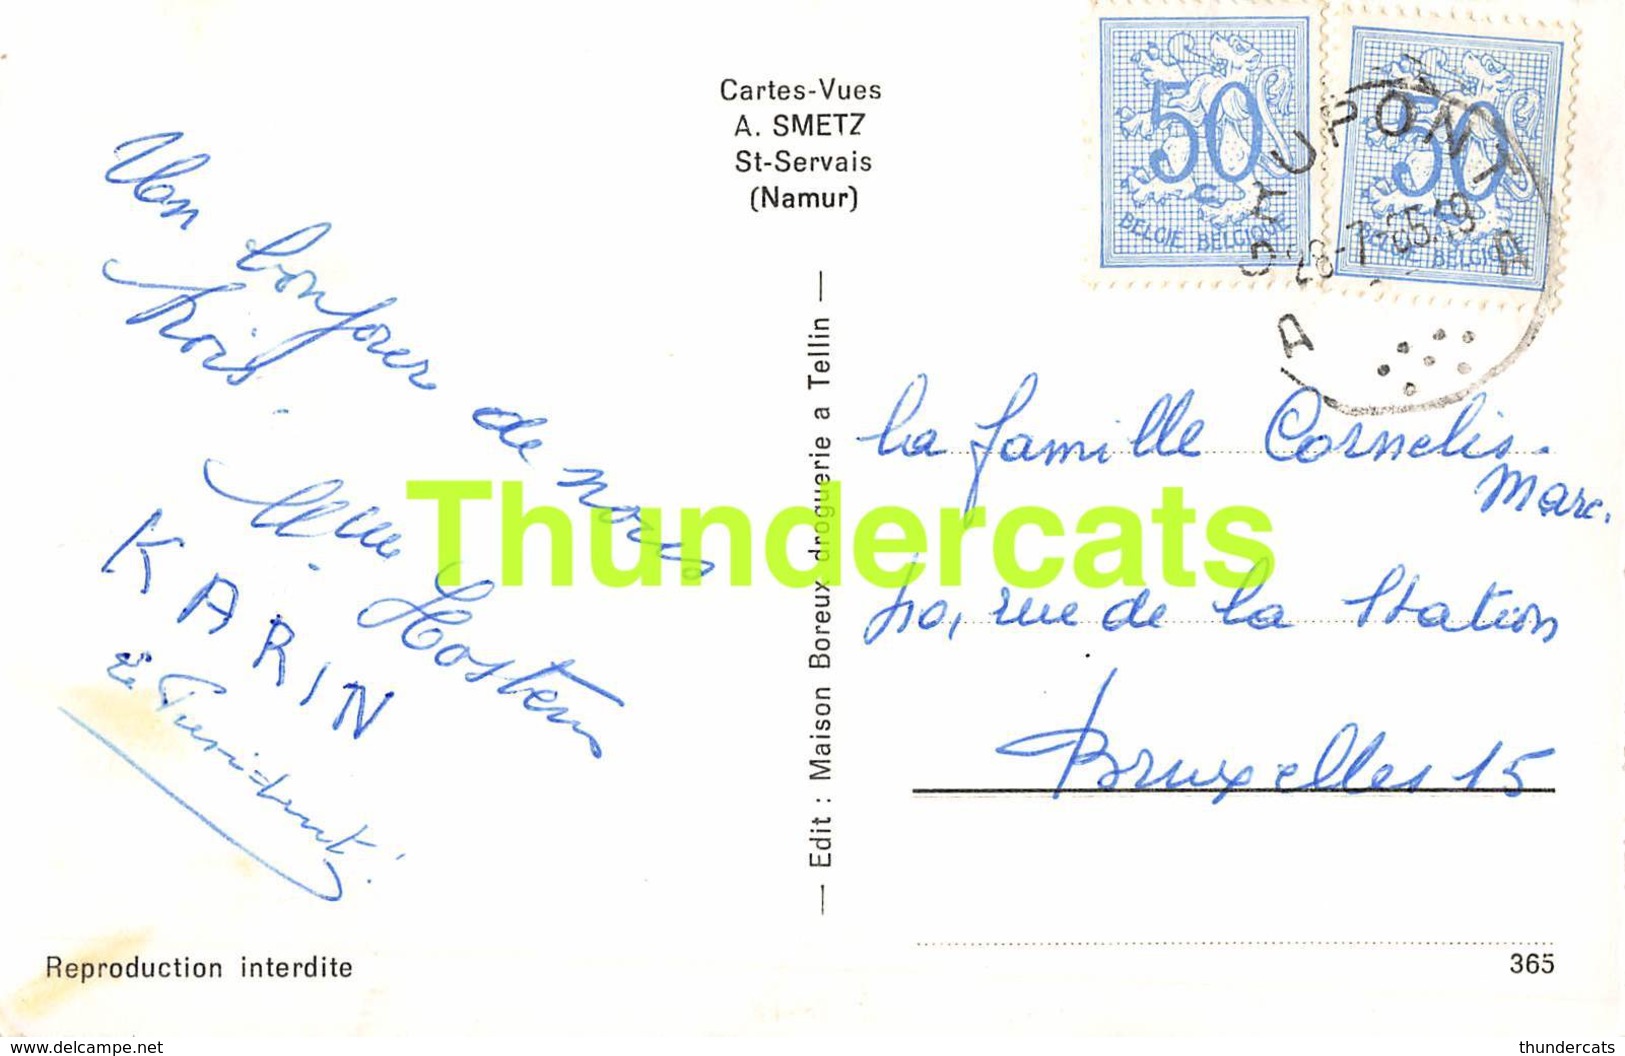 Cartes-Vues
A. SMETZ
St-Servais
(Namur)
50
BELGIE BELGIQUE
50
BELGIE BELGIQUE
GRUPONT
28-7-65.19
A A
bonjour de nous
trois.
Hostens
KARIN
Edit : Maison Boreux droguerie a Tellin
la famille Cornelis.
Marc.
rue de la Station
Bruxelles 15
Thundercats
Reproduction interdite
365
www.delcampe.net
thundercats